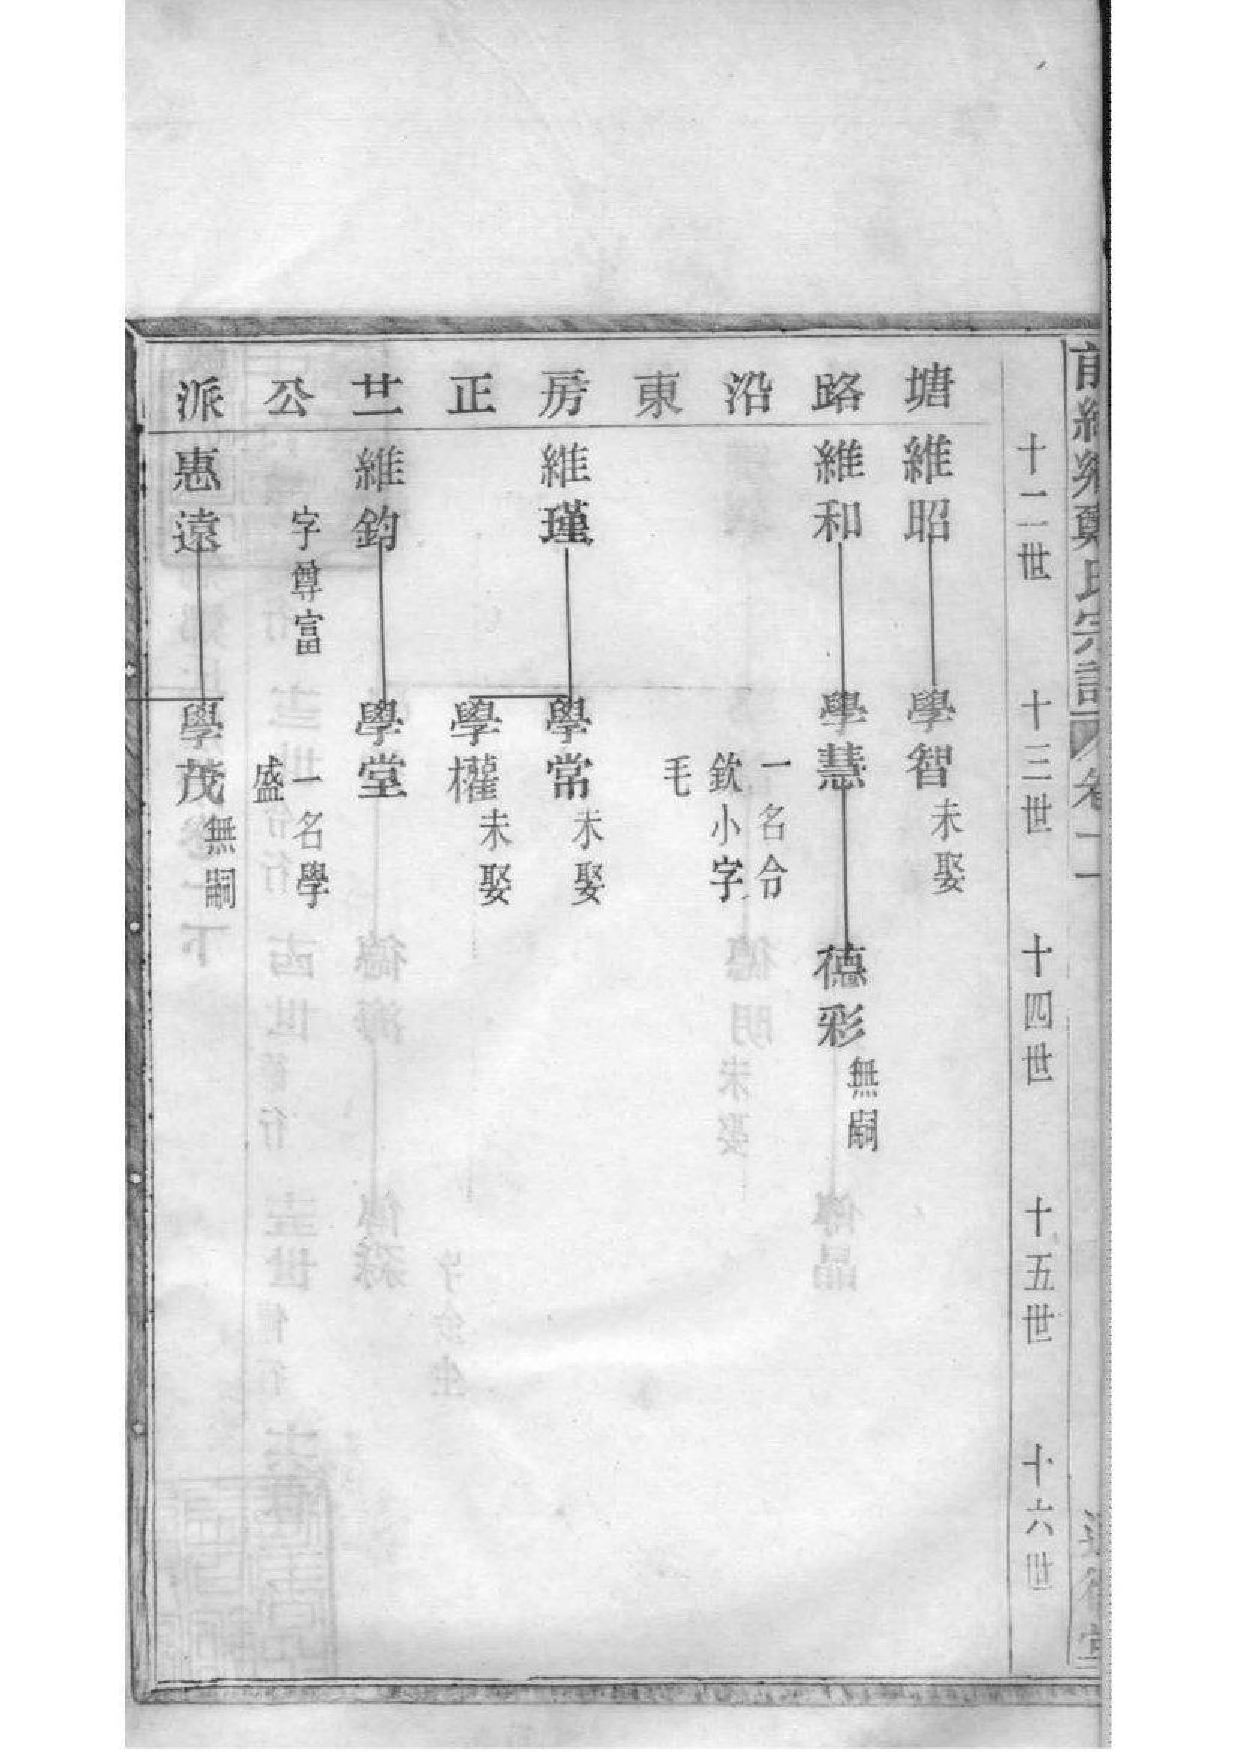 鄭氏宗譜
卷一
十二世 十三世 十四世 十五世 十六世
塘路沿東房正廿一公派
維昭 學智 未娶
維和 學慧 德彩 無嗣
一名令
欽小字
毛
維瑾 學常 未娶
學權 未娶
維鈞 學堂
字尊富 一名學
盛
惠遠 學茂 無嗣